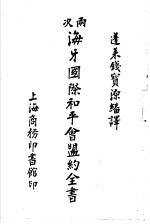 蓬莱錢寶源編譯
兩次海牙國際和平會盟約全書
上海商務印書館印